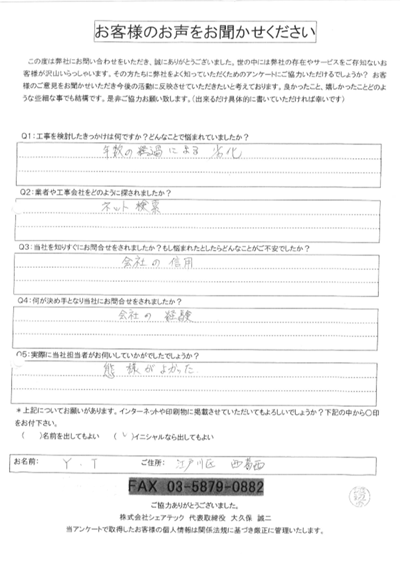 お客様のお声をお聞かせください
この度は弊社にお問い合わせをいただき、誠にありがとうございました。世の中には弊社の存在やサービスをご存知ないお
客様が沢山いらっしゃいます。その方たちに弊社をよく知っていただくためのアンケートにご協力いただけるでしょうか？ お客
様のご意見をお聞かせいただき今後の活動に反映させていただきたいと考えております。良かったこと、嬉しかったことどのよ
うな些細な事でも結構です。是非ご協力お願い致します。（出来るだけ具体的に書いていただければ幸いです）
Q1：工事を検討したきっかけは何ですか？どんなことで悩まれていましたか？
年数の経過による 劣化
Q2：業者や工事会社をどのように探されましたか？
ネット検索
Q3：当社を知りすぐにお問合せをされましたか？もし悩まれたとしたらどんなことがご不安でしたか？
会社の信用
Q4：何が決め手となり当社にお問合せをされましたか？
会社の 経験
Q5：実際に当社担当者がお伺いしていかがでしたでしょうか？
態様がよかった
＊上記についてお願いがあります。インターネットや印刷物に掲載させていただいてもよろしいでしょうか？下記の中から〇印
をお付下さい。
（ ）名前を出してもよい （ ）イニシャルなら出してもよい
お名前： Y．T ご住所： 江戸川区 西葛西
FAX 03-5879-0882
ご協力ありがとうございました。
株式会社シェアテック 代表取締役 大久保 誠二
当アンケートで取得したお客様の個人情報は関係法規に基づき厳正に管理いたします。